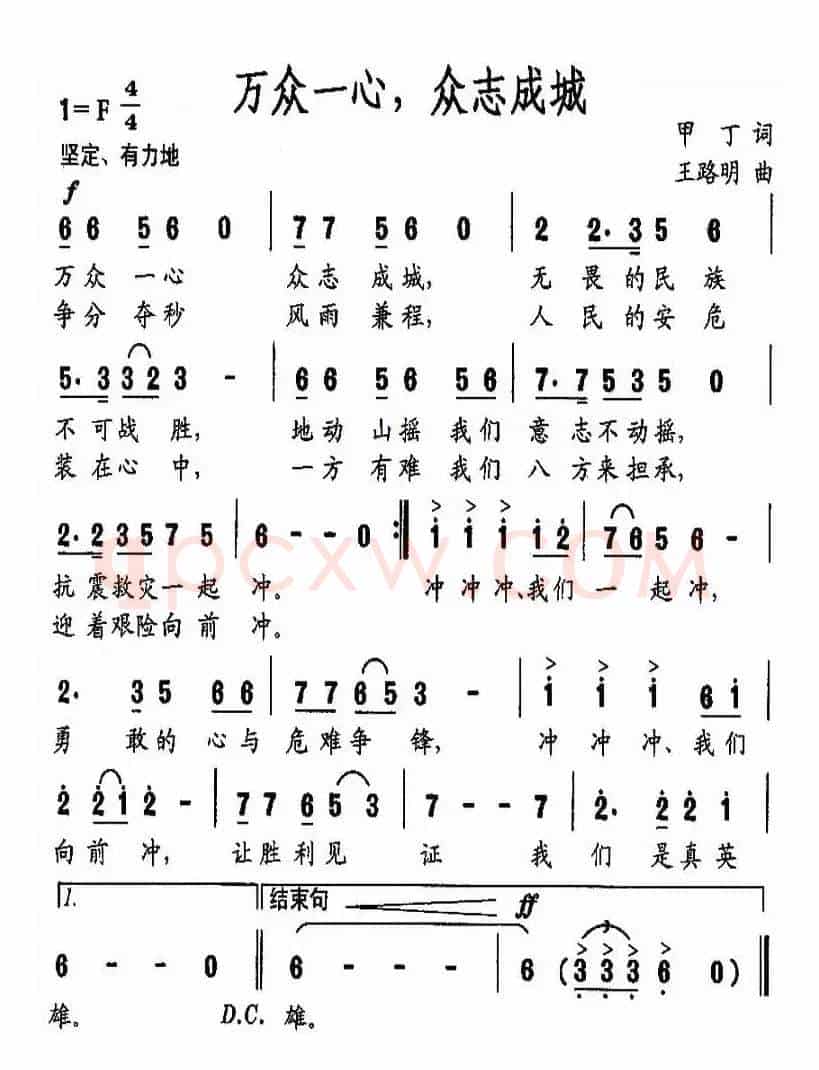 万众一心，众志成城
1=F 4/4
甲丁词
坚定、有力地
王路明曲
f
6 6 5 6 0 | 7 7 5 6 0 | 2 2· 3 5 6 |
万众一心 众志成城, 无畏的民族
争分夺秒 风雨兼程, 人民的安危
5· 3 3 2 3 - | 6 6 5 6 5 6 | 7· 7 5 3 5 0 |
不可战胜, 地动山摇我们意志不动摇,
装在心中, 一方有难我们八方来担承,
2· 2 3 5 7 5 | 6 - - 0 :| i i i i 2 | 7 6 5 6 - |
抗震救灾一起冲。 冲冲冲、我们一起冲,
迎着艰险向前冲。
2· 3 5 6 6 | 7 7 6 5 3 - | i i i 6 i |
勇敢的心与危难争锋, 冲冲冲、我们
2 2 i 2 - | 7 7 6 5 3 | 7 - - 7 | 2· 2 2 i |
向前冲, 让胜利见证 我们是真英
1. 结束句 ff
6 - - 0 || 6 - - - | 6 (3 3 3 6 0) ||
雄。 D.C. 雄。
qpcxw.COM